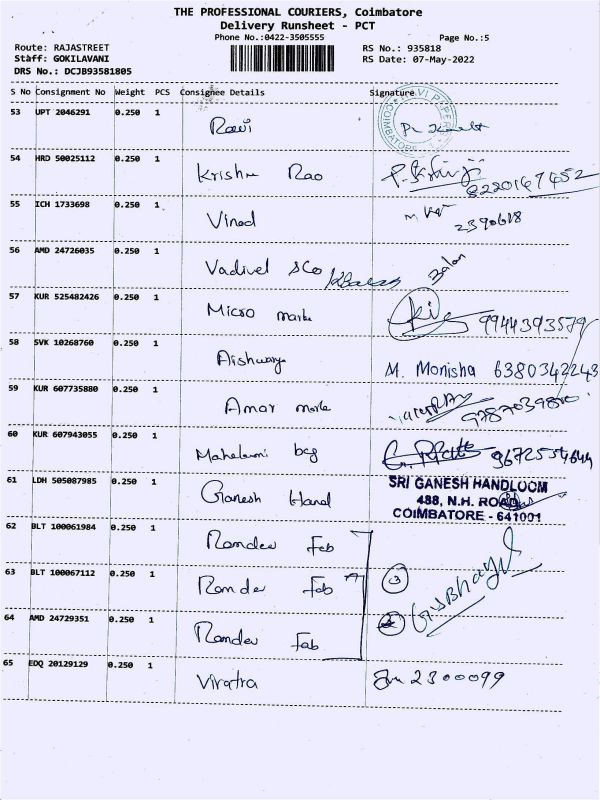 THE PROFESSIONAL COURIERS, Coimbatore
Delivery Runsheet - PCT
Phone No.:0422-3505555 Page No.:5
Route: RAJASTREET RS No.: 935818
Staff: GOKILAVANI RS Date: 07-May-2022
DRS No.: DCJB93581805
S No Consignment No Weight PCS Consignee Details Signature
53 UPT 2046291 0.250 1 Ravi
54 HRD 50025112 0.250 1 Krishna Rao
55 ICH 1733698 0.250 1 Vinod 2390618
56 AMD 24726035 0.250 1 Vadivel Balan
57 KUR 525482426 0.250 1 Micro 9944393579
58 SVK 10268760 0.250 1 Aishwarya M. Monisha 6380342243
59 KUR 607735880 0.250 1 Amar
60 KUR 607943055 0.250 1
61 LDH 505087985 0.250 1 Ganesh Hand SRI GANESH HANDLOOM
488, N.H. ROAD
COIMBATORE - 641001
62 BLT 100061984 0.250 1 Ramdev Fab
63 BLT 100067112 0.250 1 Ramdev Fab 3
64 AMD 24729351 0.250 1 Ramdev Fab
65 EDQ 20129129 0.250 1 Viratra 2300099